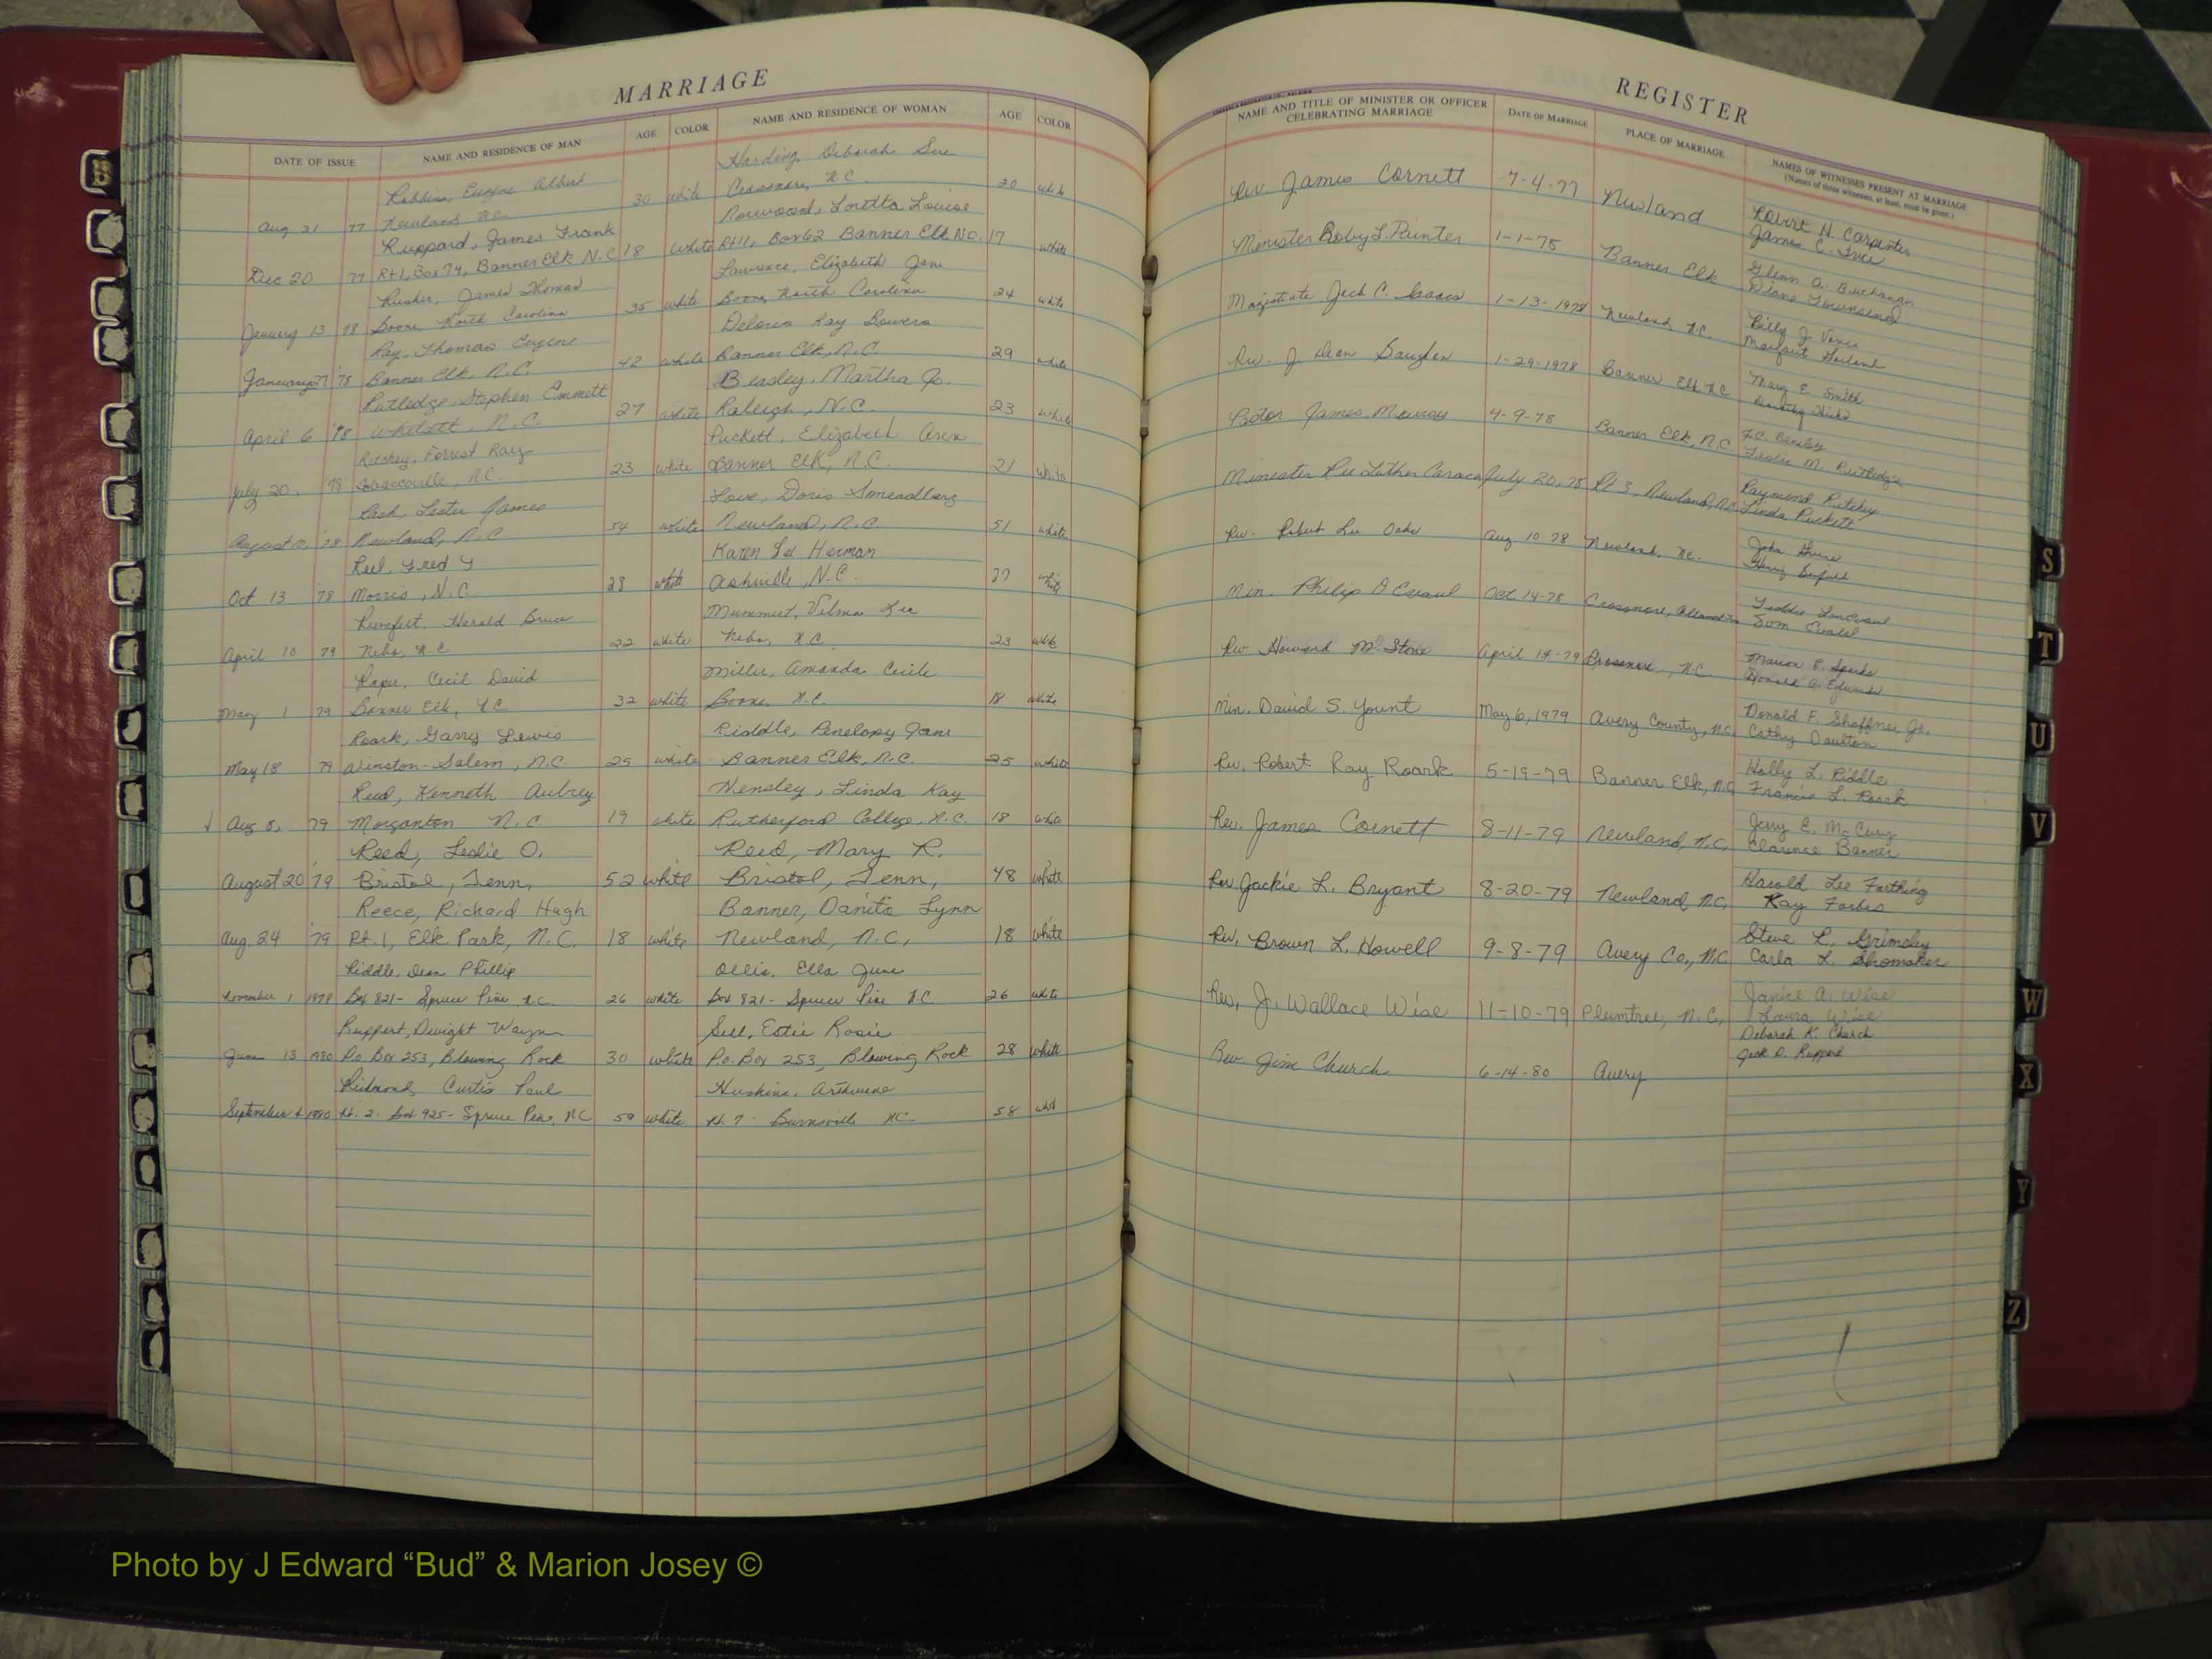 MARRIAGE
DATE OF ISSUE NAME AND RESIDENCE OF MAN AGE COLOR NAME AND RESIDENCE OF WOMAN AGE COLOR
Robbins, Eugene Albert Harding, Deborah Sue
Aug 31 77 Newland NC 30 white Crossnore, N.C. 20 white
Ruppard, James Frank Norwood, Loretta Louise
Dec 20 77 Rt 1, Box 74, Banner Elk N.C. 18 White Rt 11, Box 62 Banner Elk, N.C. 17 white
Rusher, James Thomas Lawrence, Elizabeth Jane
January 13 78 Boone, North Carolina 35 white Boone, North Carolina 24 white
Ray, Thomas Eugene Deloris Kay Bowers
January 27 '78 Banner Elk, N.C. 42 white Banner Elk, N.C. 29 white
Rutledge, Stephen Emmett Beasley, Martha Jo.
April 6 '78 Whitsett, N.C. 27 white Raleigh, N.C. 23 white
Ritchey, Forrest Ray Puckett, Elizabeth Ann
July 20, '78 N.C. 23 white Banner Elk, N.C. 21 white
Rash, Lester James Love, Doris
August '78 Newland, N.C. 54 white Newland, N.C. 51 white
Reel, Fred Y Karen Lee Herman
Oct 13 '78 Morris, N.C 28 white Asheville, N.C. 27 white
Harold Bruce Mummert, Vilma Lee
April 10 79 Nebo, N.C 22 white Nebo, N.C. 23 white
Roper, Cecil David Miller, Amanda Cecile
May 1 79 Banner Elk, N.C 32 white Boone, N.C. 18 white
Roark, Garry Lewis Riddle, Penelopy Jane
May 18 79 Winston-Salem, N.C 25 white Banner Elk, N.C. 25 white
Reed, Kenneth Aubrey Hensley, Linda Kay
Aug 8, 79 Morganton N.C 19 white Rutherford College, N.C. 18 white
Reed, Leslie O. Reed, Mary R.
August 20 '79 Bristol, Tenn, 52 white Bristol, Tenn, 48 white
Reece, Richard Hugh Banner, Danita Lynn
Aug. 24 '79 Rt. 1, Elk Park, N.C. 18 white Newland, N.C., 18 white
Riddle, Dean Phillip Ollis, Ella June
November 1 1979 Box 821- Spruce Pine N.C. 26 white Box 821- Spruce Pine N.C 26 white
Ruppert, Dwight Wayne Sell, Estie Rosie
June 13 1980 P.o. Box 253, Blowing Rock 30 white P.o. Box 253, Blowing Rock 28 white
Redmond, Curtis Paul Huskins,
September 1980 Rt. 2- Box 925- Spruce Pine, NC 59 white Rt. 7 Burnsville NC 58 white
REGISTER
NAME AND TITLE OF MINISTER OR OFFICER CELEBRATING MARRIAGE DATE OF MARRIAGE PLACE OF MARRIAGE NAMES OF WITNESSES PRESENT AT MARRIAGE
(Names of three witnesses, at least, must be given.)
Rev. James Cornett 7-4-77 Newland Robert H. Carpenter
James C.
Minister Roby L. Painter 1-1-78 Banner Elk Glenn A. Buchanan
Diane Townsend
Magistrate Jack C. Isaacs 1-13-1978 Newland, N.C. Billy J. Vance
Margaret
Rev. J. Dean 1-29-1978 Banner Elk N.C Mary E. Smith
Dorothy Hicks
Pastor James Mowray 4-9-78 Banner Elk, N.C. J.C. Beasley
Leslie M. Rutledge
Minister Luther July 20, 78 Rt 3, Newland, N.C. Raymond Ritchey
Linda Puckett
Rev. Robert Lee Oaks Aug 10-78 Newland, NC. John
Min. Philip Oct 14-78 Crossnore,
Tom
Rev Howard M. Stone April 14-79 Crossnore, NC Marion E. Sparks
Donald E. Edwards
Min. David S. Yount May 6, 1979 Avery County, N.C. Donald F. Shaffner Jr.
Cathy Daulton
Rev. Robert Ray Roark 5-19-79 Banner Elk, N.C. Holly L. Riddle
Francis L. Roark
Rev. James Cornett 8-11-79 Newland, N.C. Jerry E. McCurry
Clarence Banner
Rev. Jackie L. Bryant 8-20-79 Newland N.C. Harold Lee Farthing
Kay Forbes
Rev. Brown L. Howell 9-8-79 Avery Co., N.C. Steve R. Grimsley
Carla L. Shomaker
Rev, J. Wallace Wise 11-10-79 Plumtree, N.C. Janice A. Wise
Laura Wise
Rev Jim Church 6-14-80 Avery Deborah K. Church
Jack D. Ruppard
B
S
T
U
V
W
X
Y
Z
Photo by J Edward “Bud” & Marion Josey ©